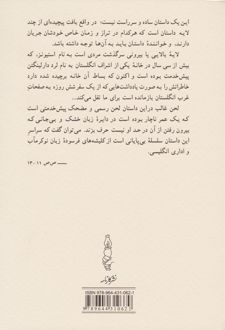 این یک داستان ساده و سرراست نیست؛ در واقع بافت پیچیده‌ای از چند
لایه داستان است که هرکدام در تراز و زمان خاص خودشان جریان
دارند، و خوانندهٔ داستان باید به آن‌ها توجه داشته باشد.
لایهٔ بالایی یا بیرونی سرگذشت مردی است به نام استیونز، که
بیش از سی سال در خانهٔ یکی از اشراف انگلستان به نام لرد دارلینگتن
پیش‌خدمت بوده است و اکنون که بساط آن خانه برچیده شده دارد
خاطراتش را به صورت یادداشت‌هایی که از یک سفر شش روزه به صفحات
غرب انگلستان بازمانده است برای ما نقل می‌کند...
لحن غالب در این داستان لحن رسمی و مضحک پیش‌خدمتی است
که یک عمر ناچار بوده است در دایرهٔ زبان خشک و بی‌جانی که
بیرون رفتن از آن در حد او نیست حرف بزند. می‌توان گفت که سراسر
این داستان سلسلهٔ بی‌پایانی است از کلیشه‌های فرسودهٔ زبان نوکرمآب
و اداری انگلیسی.
— ص ص ۱۱-۱۳
نشر کارنامه
ISBN 978-964-431-062-1
9 789644 310621